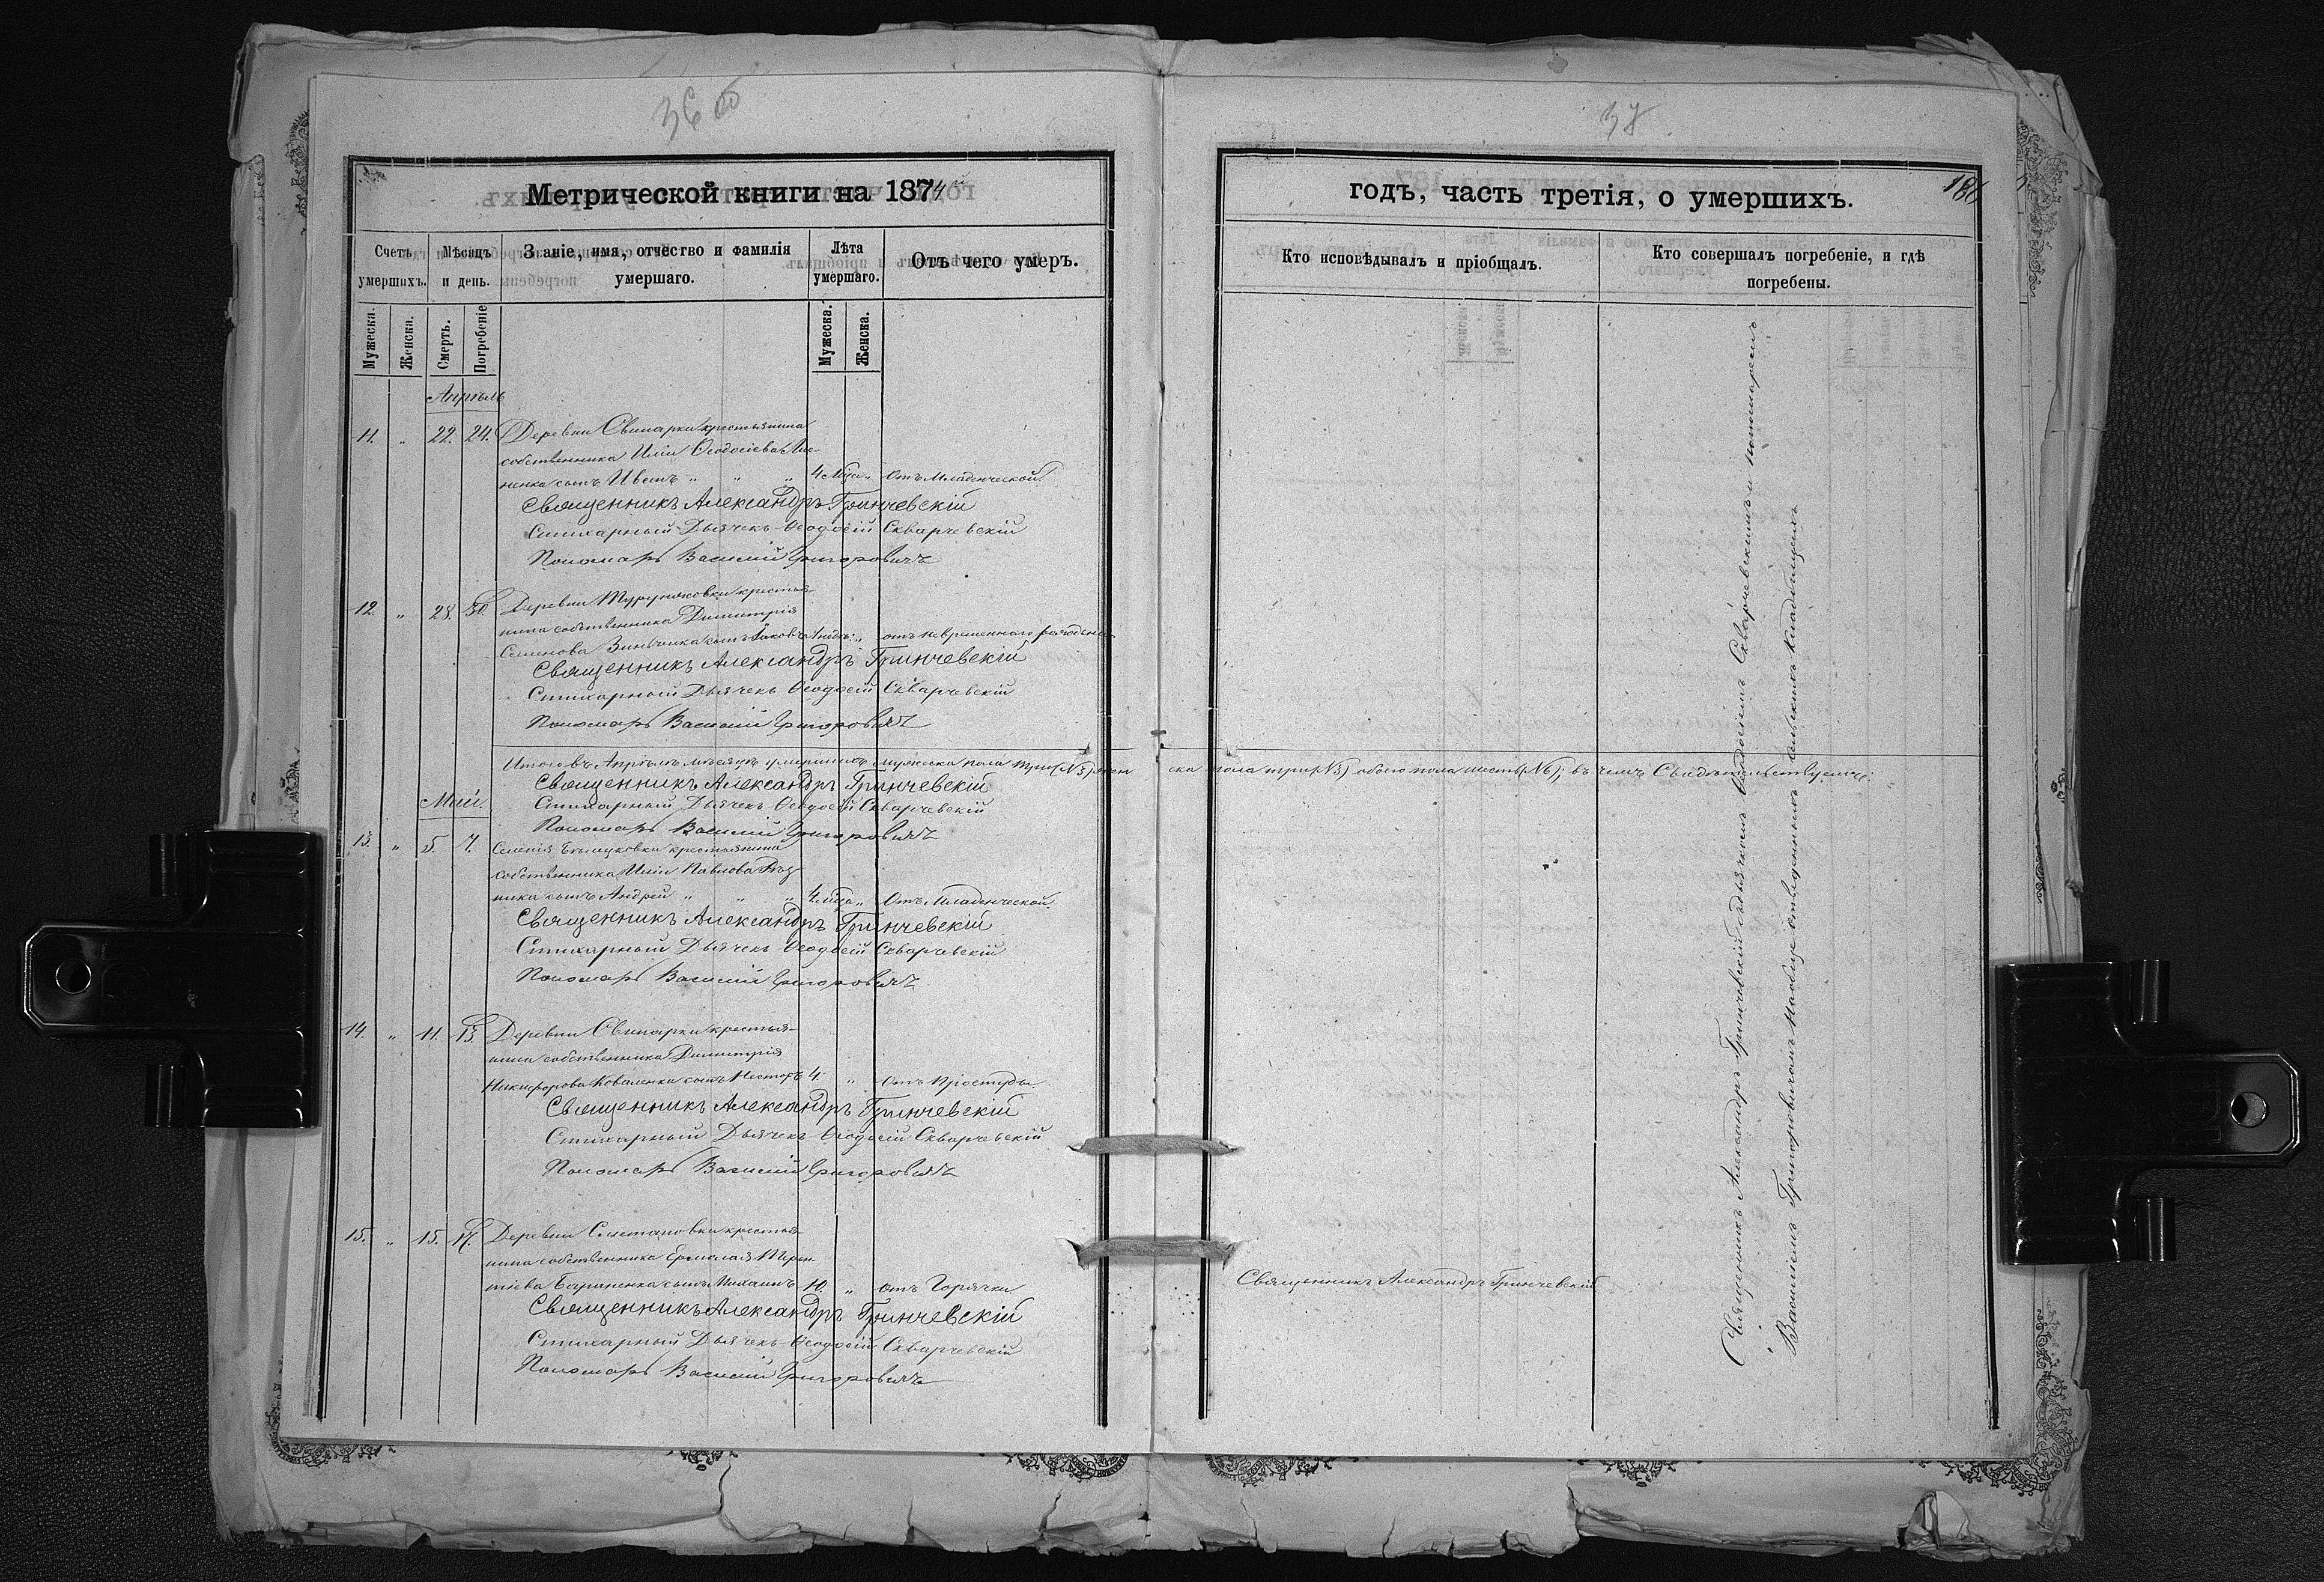 36 об
37
186
Метрической книги на 1874й
годъ, часть третія, о умершихъ.
Счетъ умершихъ.
Мѣсяцъ и день.
Званіе, имя, отчество и фамилія умершаго.
Лѣта умершаго.
Отъ чего умеръ.
Кто исповѣдывалъ и пріобщалъ.
Кто совершалъ погребеніе, и гдѣ погребены.
Мужеска.
Женска.
Смерть.
Погребеніе
Мужеска.
Женска.
Апрѣль
11. " 22. 24. Деревни Свинарки крестьянина
собственника Иліи Ѳеодосіева
ненка сынъ " " " 4 мѣся " Отъ Младенческой
Священникъ Александръ Гринчевскій
Стихарный Дьячекъ Ѳеодосій Скварчевскій
Пономарь Василій Григоровичъ
12. " 28. 30. Деревни крестья-
нина собственника Димитрія
Семенова Зинченка сынъ Іаковъ " отъ невременнаго рожденія
Священникъ Александръ Гринчевскій
Стихарный Дьячекъ Ѳеодосій Скварчевскій
Пономарь Василій Григоровичъ
Итого въ Апрѣлѣ мѣсяцѣ умершихъ мужеска пола три (№3) жен ска пола три (№3) обоего пола шесть (№6); въ чемъ Свидѣтельствуемъ:
Священникъ Александръ Гринчевскій
Стихарный Дьячекъ Ѳеодосій Скварчевскій
Пономарь Василій Григоровичъ
Май.
13. " 5 7. Селенія крестьянина
собственника Иліи Павлова
ника сынъ Андрей " " " 4 мѣся " Отъ Младенческой.
Священникъ Александръ Гринчевскій
Стихарный Дьячекъ Ѳеодосій Скварчевскій
Пономарь Василій Григоровичъ
14. " 11. 13. Деревни Свинарки крестья-
нина собственника Димитрія
Никифорова Коваленка сынъ Несторъ 4. " Отъ простуды.
Священникъ Александръ Гринчевскій
Стихарный Дьячекъ Ѳеодосій Скварчевскій
Пономарь Василій Григоровичъ
15. " 15. 17. Деревни крестья-
нина собственника Ермолая Терен
тіева сынъ Михаилъ 10. " отъ Горячки Священникъ Александръ Гринчевскій
Священникъ Александръ Гринчевскій
Стихарный Дьячекъ Ѳеодосій Скварчевскій
Пономарь Василій Григоровичъ
Священникъ Александръ Гринчевскій съ дьячкомъ Ѳеодосіемъ Скварчевскимъ и пономаремъ
Василіемъ Григоровичемъ на общеотведенныхъ сельскихъ кладбищахъ